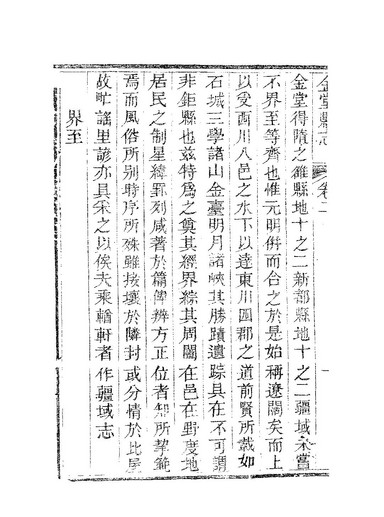 金堂縣志 卷一
金堂得隋之雒縣地十之二新都縣地十之二疆域未嘗
不界至等齊也惟元明併而合之於是始稱遼闊矣而上
以受西川八邑之水下以達東川四郡之道前賢所載如
石城三學諸山金臺明月諸峽其勝蹟遺踪具在不可謂
非鉅縣也兹特為之奠其經界綜其周圍在邑在野度地
居民之制星緯罫刻咸著於篇俾辨方正位者知所挈範
焉而風俗所別時序所殊雖接壤於隣封或分情於比屋
故氓謠里諺亦具采之以俟夫乘輶軒者作疆域志
界至